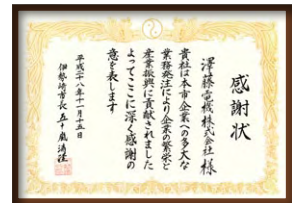 感謝状
澤藤電機株式会社様
貴社は本市企業への多大な
業務発注により企業の繁栄と
産業振興に貢献されました
よってここに深く感謝の
意を表します
平成二十八年十一月十五日
伊勢崎市長 五十嵐清隆